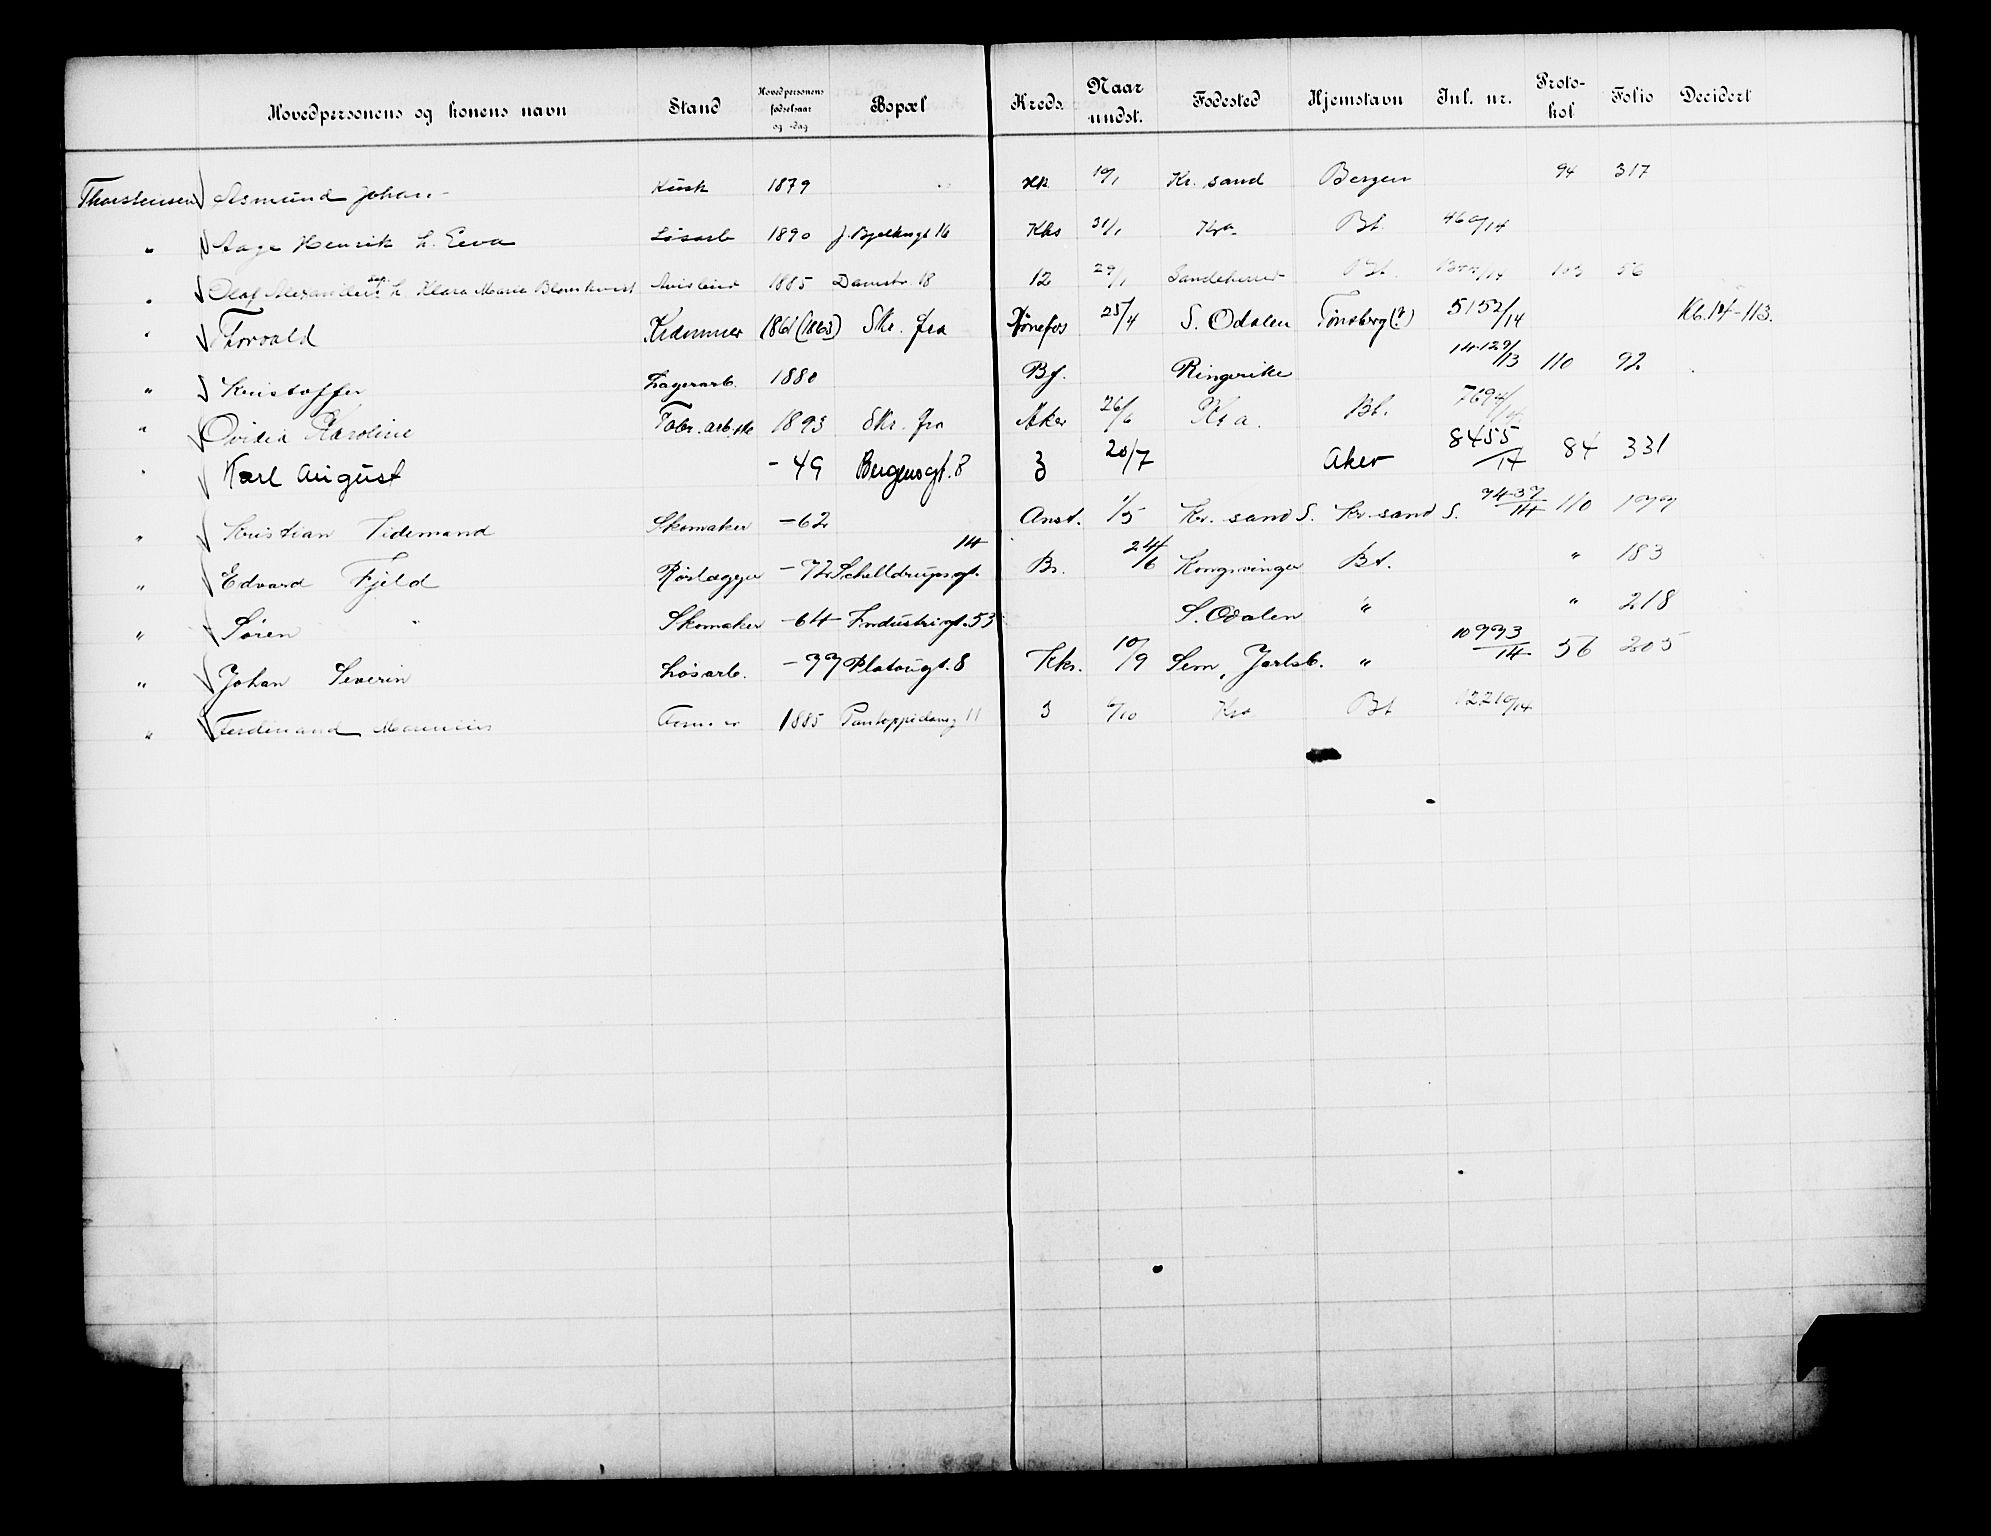 Hovedpersonens og konens navn Stand Hovedpersonens fødselsaar og -dag Bopæl Kreds. Naar undst. Fødested Hjemstavn Inl. nr. Proto-kol Folio Decidert
Thorstensen Asmund Johan Kusk 1879 19/1 Kr. sand Bergen 94 317
" Aage Henrik h. Eeva Løsarb 1890 J. Bjelkesgt 16 Kks 31/1 Kra Bt. 460/14
" Olaf Alexander h. Klara Marie Blomkvist 1885 Damstr. 18 12 29/1 Sandeherred 103 56
" Thorvald 1861 (1863) Skr. fra Hønefos 25/4 S. Odalen Tønsberg (?) 5152/14 Kb. 14-113.
" Kristoffer Lagerarb. 1880 Bf. Ringerike 14.129/13 110 92
" Ovidia Karoline Fabr. arb.ske 1893 Skr. fra Aker 26/6 Kra. Bt. 7694/14
" Karl August - 49 Bergensgt. 8 3 20/7 Aker 8455/14 84 331
" Kristian Tidemand Skomaker - 62 Anst. 1/5 Kr. sand S. Kr. sand S. 7437/14 110 177
" Edvard Fjeld Rørlægger - 72 Schelldrupsgt. 14 Br. 24/6 Kongsvinger Bt. " 183
" Søren " Skomaker - 64 Industrigt. 53 S. Odalen " " 218
" Johan Severin Løsarb. - 77 Platougt. 8 Kks. 10/9 Sem, Jarlsb. " 10773/14 56 205
" Ferdinand 1885 Pantoppidansg 11 3 6/10 Kra Bt 12210/14